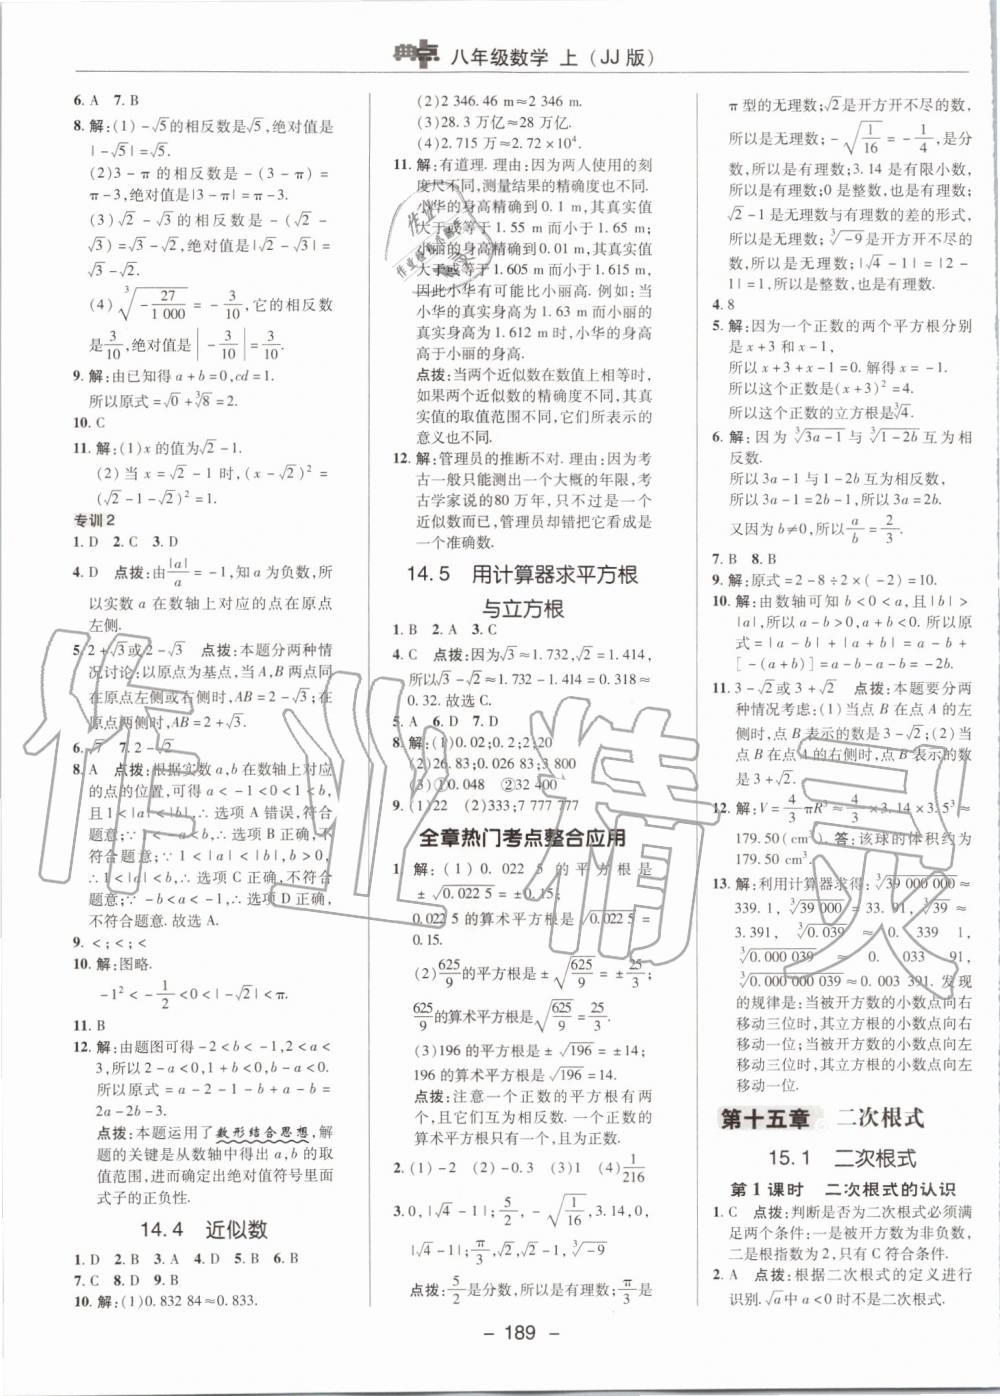 典点 八年级数学 上(JJ版)
6. A 7. B
8. 解:(1)-√5的相反数是√5,绝对值是
|-√5|=√5.
(2)3-π 的相反数是-(3-π)=
π-3,绝对值是|3-π|=π-3.
(3)√2-√3的相反数是-(√2-
√3)=√3-√2,绝对值是|√2-√3|=
√3-√2.
(4)∛(-27/1 000)=-3/10,它的相反数
是3/10,绝对值是|-3/10|=3/10.
9. 解:由已知得a+b=0,cd=1.
所以原式=√0+∛8=2.
10. C
11. 解:(1)x的值为√2-1.
(2)当x=√2-1时,(x-√2)²=
(√2-1-√2)²=1.
专训2
1. D 2. C 3. D
4. D 点拨:由|a|/a=-1知a为负数,所
以实数a在数轴上对应的点在原点
左侧.
5. 2+√3或2-√3 点拨:本题分两种情
况讨论:以原点为基点,当A,B两点同
在原点左侧或右侧时,AB=2-√3;
在原点两侧时,AB=2+√3.
6. √7 7. 2-√2
8. A 点拨:根据实数a,b在数轴上对应
的点的位置,可得a<-1<0<1<b,
且1<|a|<|b|.∴选项A错误,符合
题意;∵1<|a|<b,∴选项B正确,不
符合题意;∵1<|a|<|b|,
∴选项C正确,不符合题意;
∵-b<a<-1,∴选项D正确,
不符合题意.故选A.
9. <;<;<
10. 解:图略.
-1²<-1/2<0<|-√2|<π.
11. B
12. 解:由题图可得-2<b<-1,2<a<
3,所以2-a<0,1+b<0,a-b>0.
所以原式=a-2-1-b+a-b=
2a-2b-3.
点拨:本题运用了数形结合思想,解
题的关键是从数轴中得出a,b的取
值范围,进而确定出绝对值符号里面
式子的正负性.
14.4 近似数
1. D 2. B 3. A 4. D 5. B 6. B
7. C 8. D 9. B
10. 解:(1)0.832 84≈0.833.
(2)2 346.46 m≈2 346 m.
(3)28.3万亿≈28万亿.
(4)2.715万≈2.72×10⁴.
11. 解:有道理.理由:因为两人使用的刻
度尺不同,测量结果的精确度也不同.
小华的身高精确到0.1 m,其真实值
大于或等于1.55 m而小于1.65 m;
小丽的身高精确到0.01 m,其真实值
大于或等于1.605 m而小于1.615 m,
因此小华有可能比小丽高.例如:当
小华的身高真实值为1.63 m而小丽的
真实身高为1.612 m时,小华的身高
高于小丽的身高.
点拨:当两个近似数在数值上相等时,
如果两个近似数的精确度不同,其真
实值的取值范围不同,它们所表示的
意义也不同.
12. 解:管理员的推断不对.理由:因为考
古一般只能测出一个大概的年限,考
古学家说的80万年,只不过是一个
近似数而已,管理员却错把它看成是
一个准确数.
14.5 用计算器求平方根
与立方根
1. B 2. A 3. C
4. C 点拨:因为√3≈1.732,√2≈1.414,
所以√3-√2≈1.732-1.414=0.318≈
0.32.故选C.
5. A 6. D 7. D
8. 解:(1)0.02;0.2;2;20
(2)26.83;0.026 83;3 800
(3)①0.048 ②32 400
9. (1)22 (2)333;7 777 777
全章热门考点整合应用
1. 解:(1)0.022 5的平方根是
±√0.022 5=±0.15;
0.022 5的算术平方根是√0.022 5=
0.15.
(2)625/9的平方根是±√(625/9)=±25/3;
625/9的算术平方根是√(625/9)=25/3.
(3)196的平方根是±√196=±14;
196的算术平方根是√196=14.
点拨:注意一个正数的平方根有两
个,且它们互为相反数.一个正数的
算术平方根只有一个.
2. (1)-2 (2)-0.3 (3)1 (4)1/216
3. 0,|√4-1|;5/2,-√(1/16),3.14,0,
|√4-1|;π/3,√2,√2-1,∛-9
点拨:5/2是分数,所以是有理数;π/3是
π型的无理数;√2是开方开不尽的数,
所以是无理数;-√(1/16)=-1/4,是分
数,所以是有理数;3.14是有限小数,
所以是有理数;0是整数,也是有理数;
√2-1是无理数与有理数的差的形式,
所以是无理数;∛-9是开方开不尽的
数,所以是无理数;|√4-1|=|2-
1|=1,所以是整数,也是有理数.
4. 8
5. 解:因为一个正数的两个平方根分别
是x+3和x-1,
所以x+3+x-1=0.解得x=-1.
所以这个正数是(x+3)²=4.
所以这个正数的立方根是∛4.
6. 解:因为∛(3a-1)与∛(1-2b)互为相
反数.
所以3a-1与1-2b互为相反数,
所以3a-1=2b-1,所以3a=2b.
又因为b≠0,所以a/b=2/3.
7. B 8. B
9. 解:原式=2-8÷2×(-2)=10.
10. 解:由数轴可知b<0<a,且|b|>
|a|,所以a-b>0,a+b<0.所以原
式=|a-b|+|a+b|=a-b+
[-(a+b)]=a-b-a-b=-2b.
11. 3-√2或3+√2 点拨:本题要分两
种情况考虑:(1)当点B在点A的左
侧时,点B表示的数是3-√2;(2)当
点B在点A的右侧时,点B表示的
数是3+√2.
12. 解:V=4/3πR³≈4/3×3.14×3.5³≈
179.50(cm³).答:该球的体积约为
179.50 cm³.
13. 解:利用计算器求得:∛39 000 000≈
339.1,∛39 000≈33.91,∛39≈
3.391,∛0.039≈0.339 1,
∛0.000 039≈0.033 91,
∛0.000 000 039≈0.003 391.发现
的规律是:当被开方数的小数点向右
移动三位时,其立方根的小数点向右
移动一位;当被开方数的小数点向左
移动三位时,其立方根的小数点向左
移动一位.
第十五章 二次根式
15.1 二次根式
第1课时 二次根式的认识
1. C 点拨:判断是否为二次根式必须满
足两个条件:一是被开方数为非负数,
二是根指数为2,只有C符合条件.
2. A 点拨:根据二次根式的定义进行
识别.√a中a<0时不是二次根式.
- 189 -
作业精灵